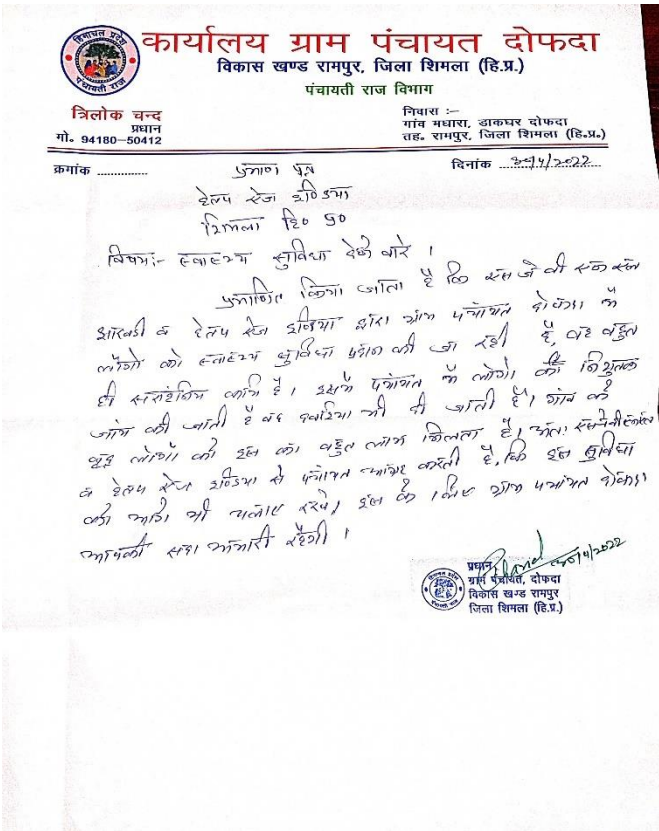 हिमाचल प्रदेश
पंचायती राज
कार्यालय ग्राम पंचायत दोफदा
विकास खण्ड रामपुर, जिला शिमला (हि.प्र.)
पंचायती राज विभाग
त्रिलोक चन्द
प्रधान
मो. 94180-50412
निवास :–
गांव मघारा, डाकघर दोफदा
तह. रामपुर, जिला शिमला (हि.प्र.)
क्रमांक ..............
दिनांक 30/4/2022
प्रमाण पत्र
हेल्प ऐज इण्डिया
शिमला हि० प्र०
विषय:- स्वास्थ्य सुविधा देने बारे ।
प्रमाणित किया जाता है कि एस जे वी एन एल
आरवडी व हेल्प ऐज इण्डिया द्वारा ग्राम पंचायत दोफदा के
लोगो को स्वास्थ्य सुविधा प्रदान की जा रही है, वह बहुत
ही कार्य है। इसमे पंचायत के लोगो की निशुल्क
जांच की जाती है वह दवाईया भी दी जाती है। गांव के
वृद्ध लोगों को इस का बहुत लाभ मिलता है। अतः
व हेल्प ऐज इण्डिया से पंचायत आग्रह करती है, कि इस सुविधा
को आगे भी चलाए रखे, इस के लिए ग्राम पंचायत दोफदा
आपकी सदा आभारी रहेगी ।
30/4/2022
प्रधान
ग्राम पंचायत, दोफदा
विकास खण्ड रामपुर
जिला शिमला (हि.प्र.)